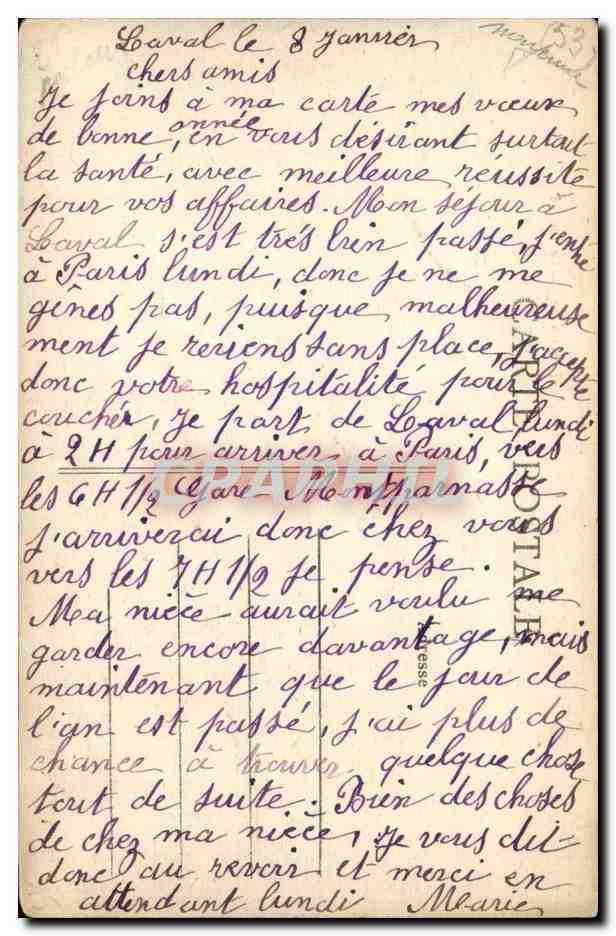 (53)
Laval le 8 Janvier
chers amis
Je joins à ma carte mes vœux
de bonne année, en vous désirant surtout
la santé, avec meilleure réussite
pour vos affaires. Mon séjour à
Laval s'est très bien passé, j'
à Paris lundi, donc je ne me
gênes pas, puisque malheureuse
ment je reviens sans place, j'accepte
donc votre hospitalité pour le
coucher, Je part de Laval lundi
à 2H pour arriver à Paris, vers
les 6H 1/2 Gare Montparnasse
j'arriverai donc chez vous
vers les 7H 1/2 je pense.
Ma nièce aurait voulu me
garder encore davantage, mais
maintenant que le jour de
l'an est passé, j'ai plus de
chance à trouver quelque chose
tout de suite. Bien des choses
de chez ma nièce, Je vous dit
donc au revoir et merci en
attendant lundi Marie
CARTE POSTALE
Adresse
CPAPHIL